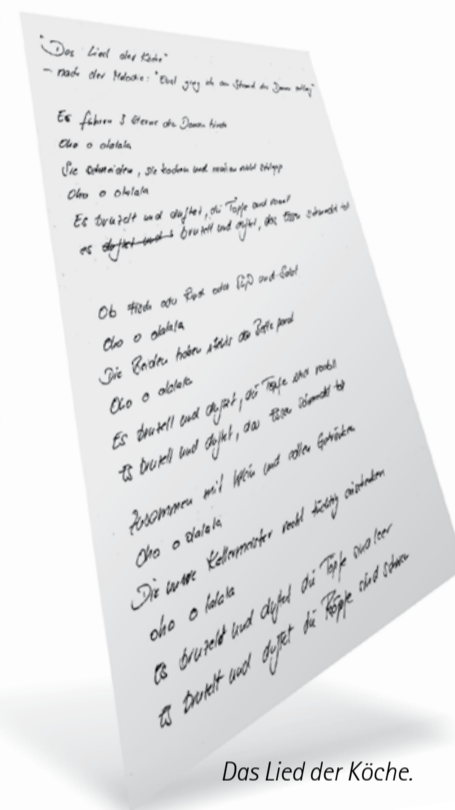 "Das Lied der Köche"
– nach der Melodie: "Einst ging ich am Strand der Donau entlang"
Es führen 3 Sterne
Oho o olalala
Sie schneiden, sie kochen und machen nicht schlapp
Oho o olalala
Es brutzelt und duftet, die Töpfe sind voll
es brutzelt und duftet, das Essen schmeckt toll
Ob Fisch oder oder und Salat
Oho o olalala
Die Beiden haben stets das parat
Oho o olalala
Es brutzelt und duftet, die Töpfe sind voll
Es brutzelt und duftet, das Essen schmeckt toll
Zusammen mit Wein und edlen Getränken
Oho o olalala
Die Kellermeister recht tüchtig einschenken
oho o lalala
Es brutzelt und duftet die Töpfe sind leer
Es brutzelt und duftet die Köpfe sind schwer
Das Lied der Köche.